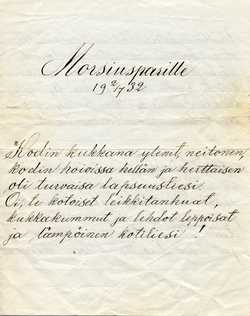 Morsiusparille
19 2/7 32
"Kodin kukkana ylenit, neitonen,
kodin hoivissa hellän ja herttaisen
oli turvaisa lapsuustiesi.
Oi, te kotoiset leikkitanhuat,
kukkakummut ja lehdot leppoisat
ja lämpöinen kotiliesi!